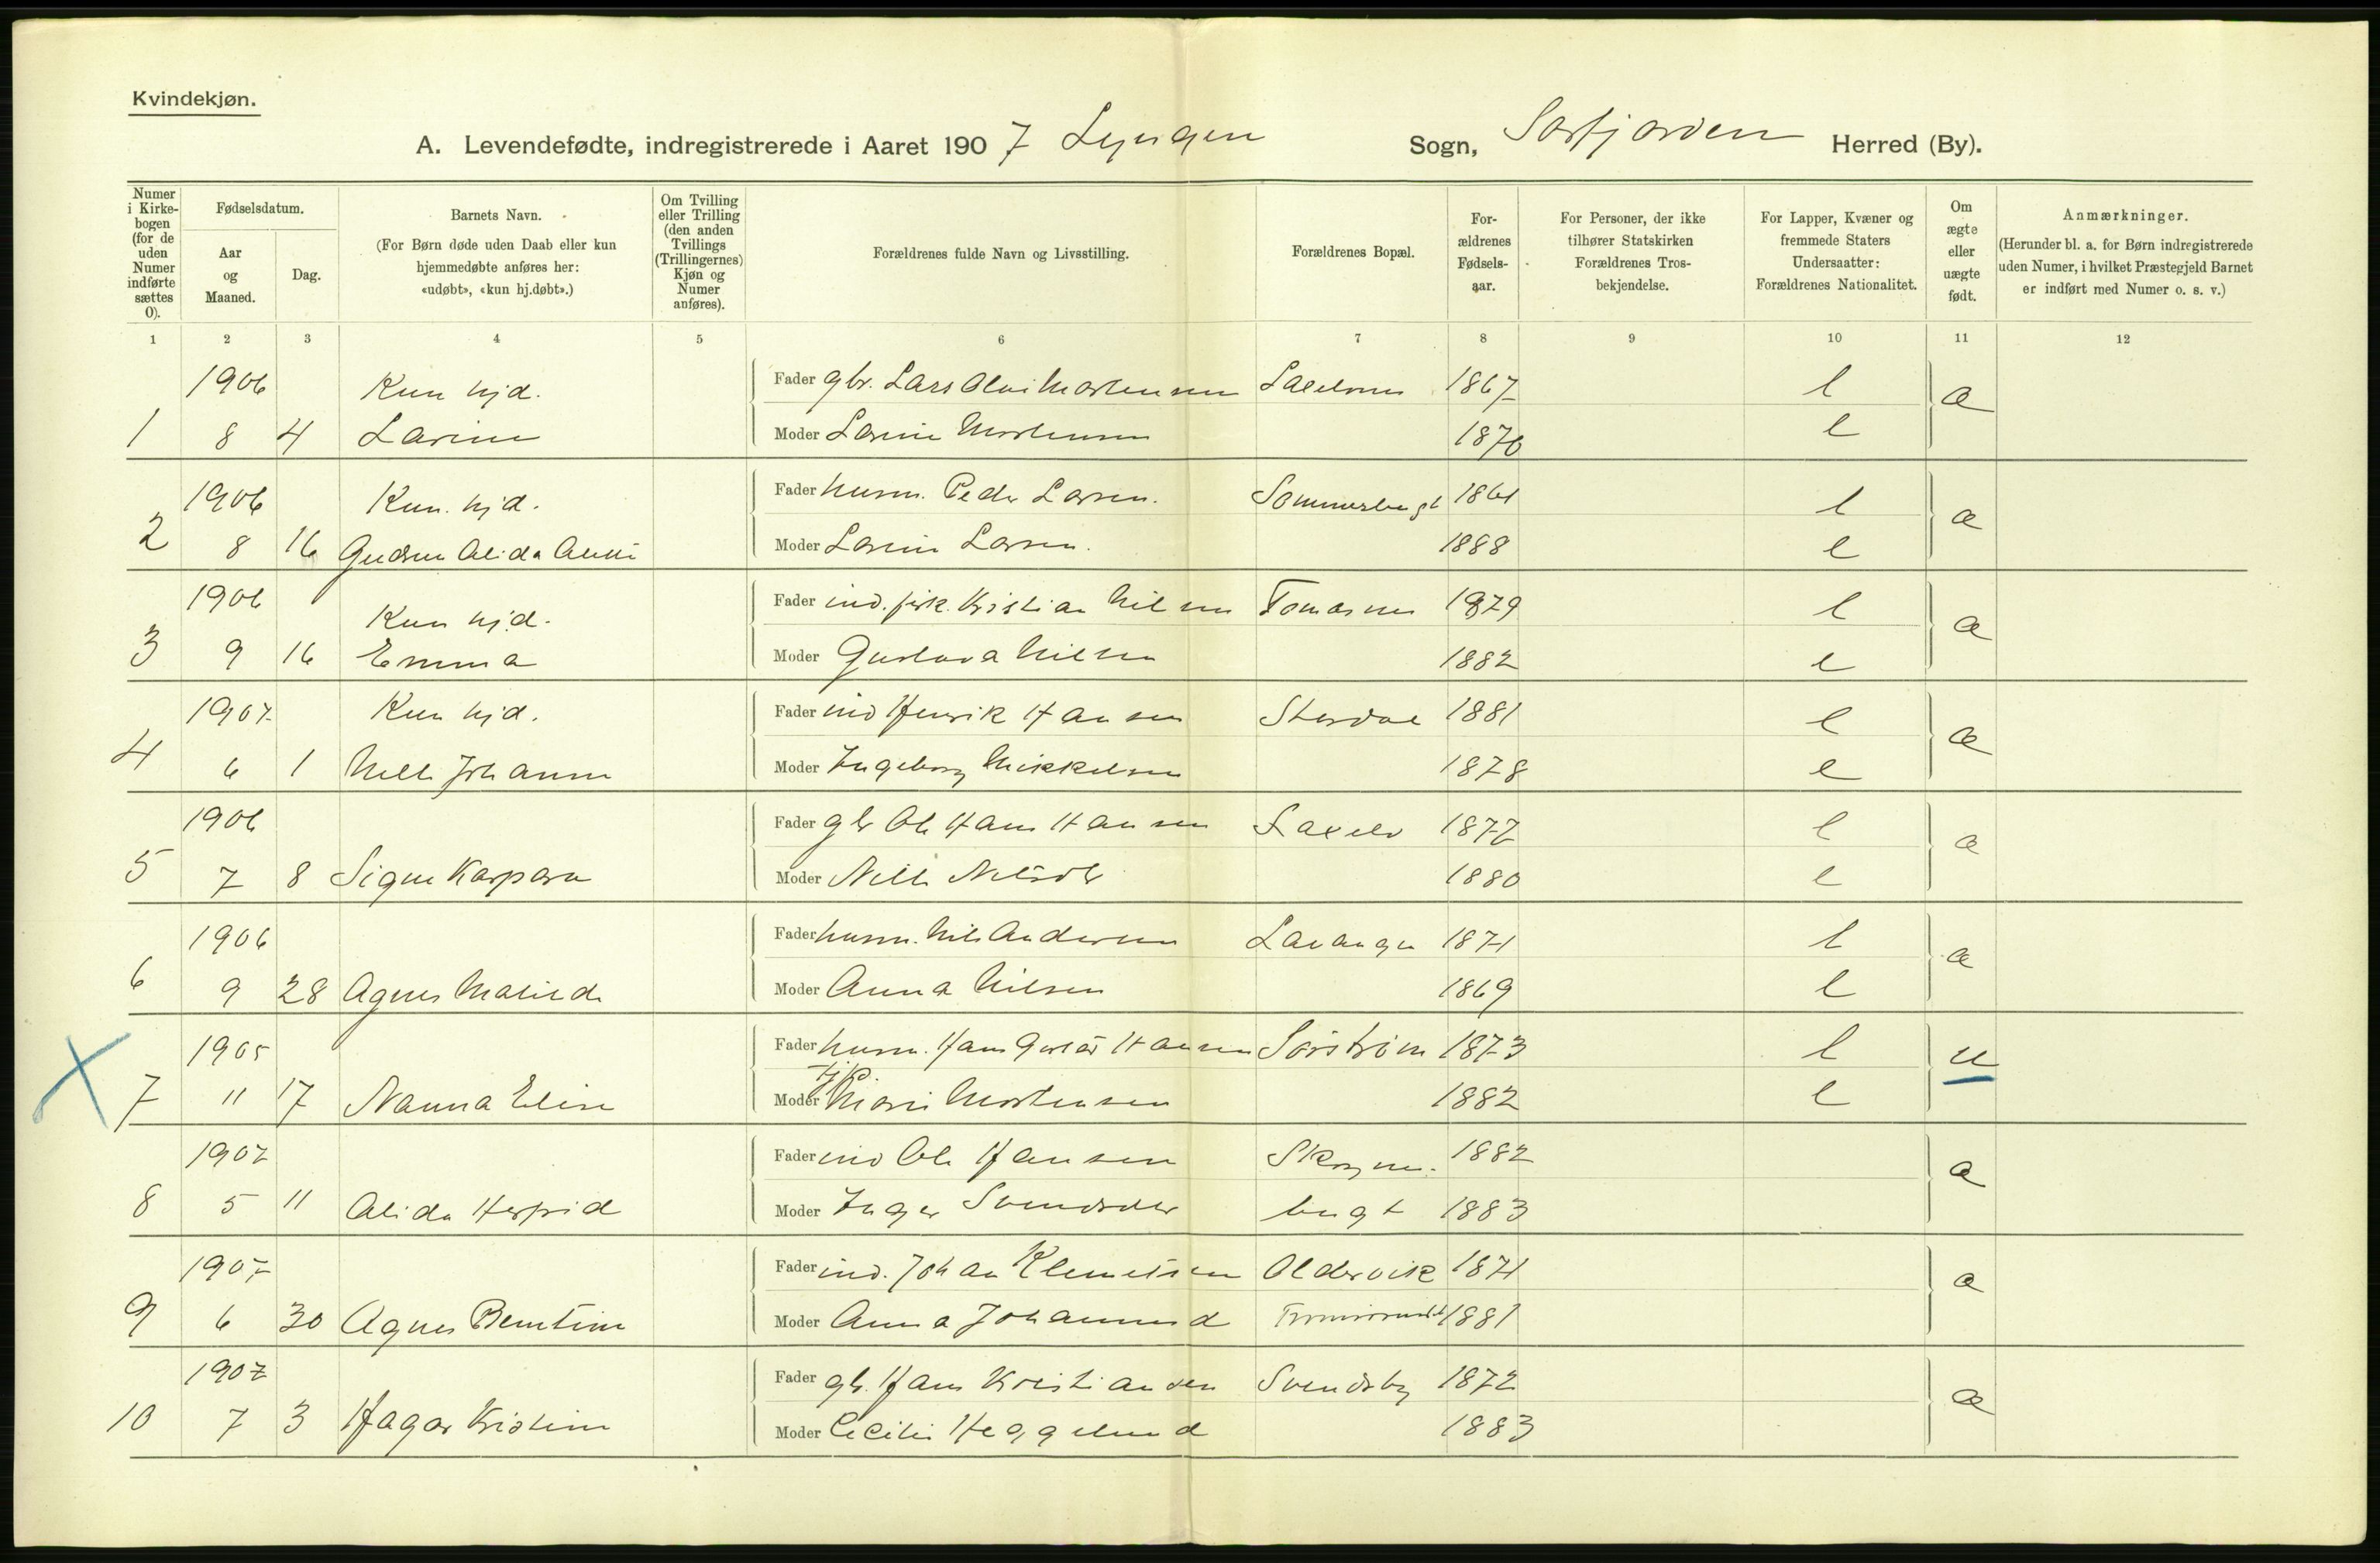 Kvindekjøn.
A. Levendefødte, indregistrerede i Aaret 1907 Lyngen Sogn, Sørfjorden Herred (By).
Numer i Kirke-bogen (for de uden Numer indførte sættes 0).
Fødselsdatum.
Aar og Maaned.
Dag.
Barnets Navn.
(For Børn døde uden Daab eller kun hjemmedøbte anføres her: «udøbt», «kun hj.døbt».)
Om Tvilling eller Trilling (den anden Tvillings (Trillingernes) Kjøn og Numer anføres).
Forældrenes fulde Navn og Livsstilling.
Forældrenes Bopæl.
For-ældrenes Fødsels-aar.
For Personer, der ikke tilhører Statskirken Forældrenes Tros-bekjendelse.
For Lapper, Kvæner og fremmede Staters Undersaatter: Forældrenes Nationalitet.
Om ægte eller uægte født.
Anmærkninger.
(Herunder bl. a. for Børn indregistrerede uden Numer, i hvilket Præstegjeld Barnet er indført med Numer o. s. v.)
1 2 3 4 5 6 7 8 9 10 11 12
1906 Kun hjd. Fader gbr. Lars Mortensen 1867 l æ
1 8 4 Larine Moder Mortensen 1876 l
1906 Kun hjd. Fader husm. Peder Larsen. Sommerbugt 1861 l æ
2 8 16 Gudrun Alida Moder Larsen. 1888 l
1906 Kun hjd. Fader ind. fisk. Kristian Nilsen Tomasnes 1879 l æ
3 9 16 Emma Moder Gustava Nilsen 1882 l
1907 Kun hjd. Fader ind Henrik Hansen 1881 l æ
4 6 1 Johanne Moder Ingeborg Mikkelsen 1878 l
1906 Fader gbr Ole Hans Hansen Laxelv 1872 l æ
5 7 8 Signe Kaspara Moder 1880 l
1906 Fader husm. Nils Andersen Lavangen 1871 l æ
6 9 28 Agnes Matilde Moder Anna Nilsen 1869 l
1905 Fader husm. Hans Hansen Sørstrøm 1873 l u
7 11 17 Nanna Elise Moder Marie Mortensen 1882 l
1907 Fader ind Ole Hansen 1882 æ
8 5 11 Alida Moder Inger bugt 1883
1907 Fader ind. Johan Klemetsen Oldervik 1871 æ
9 6 30 Agnes Berntine Moder Anna 1881
1907 Fader gb. Hans Kristiansen Svendsby 1872 æ
10 7 3 Hagar Kristine Moder Cecilie Heggelund 1883